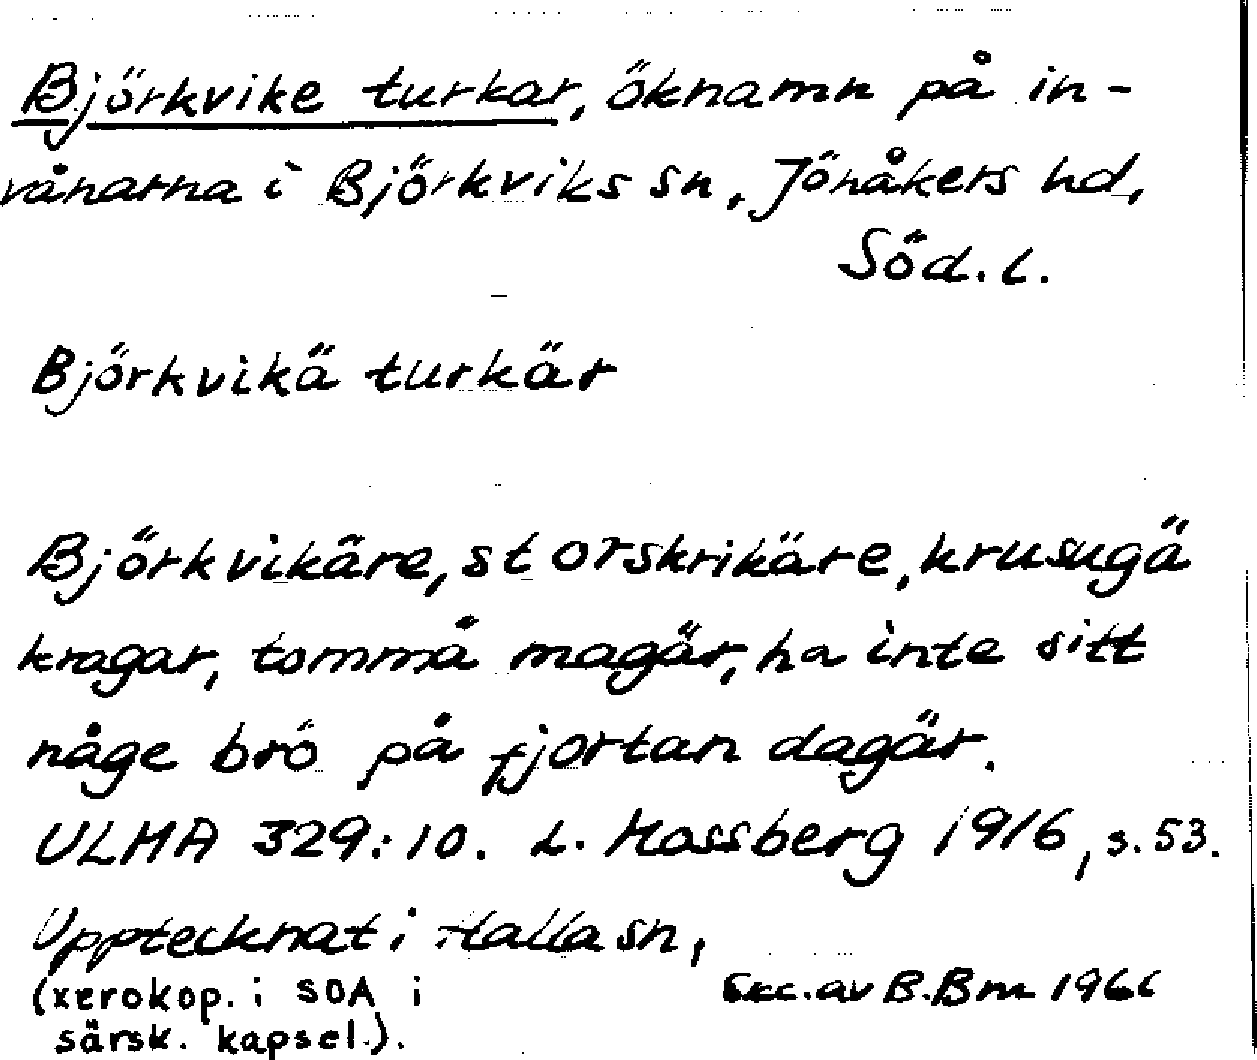 Björkvike turkar, öknamn på in-
vånarna i Björkviks sn, Jönåkers hd,
Söd.l.
Björkvikä turkär
Björkvikäre, storskrikäre, krusugä
kragar, tommå magär, ha inte sitt
någe brö på fjortan dagär.
ULMA 329:10. L. Mossberg 1916, s. 53.
Upptecknat i Halla sn,
(xerokop. i SOA i
särsk. kapsel.).
Exc. av B.Bm 1966